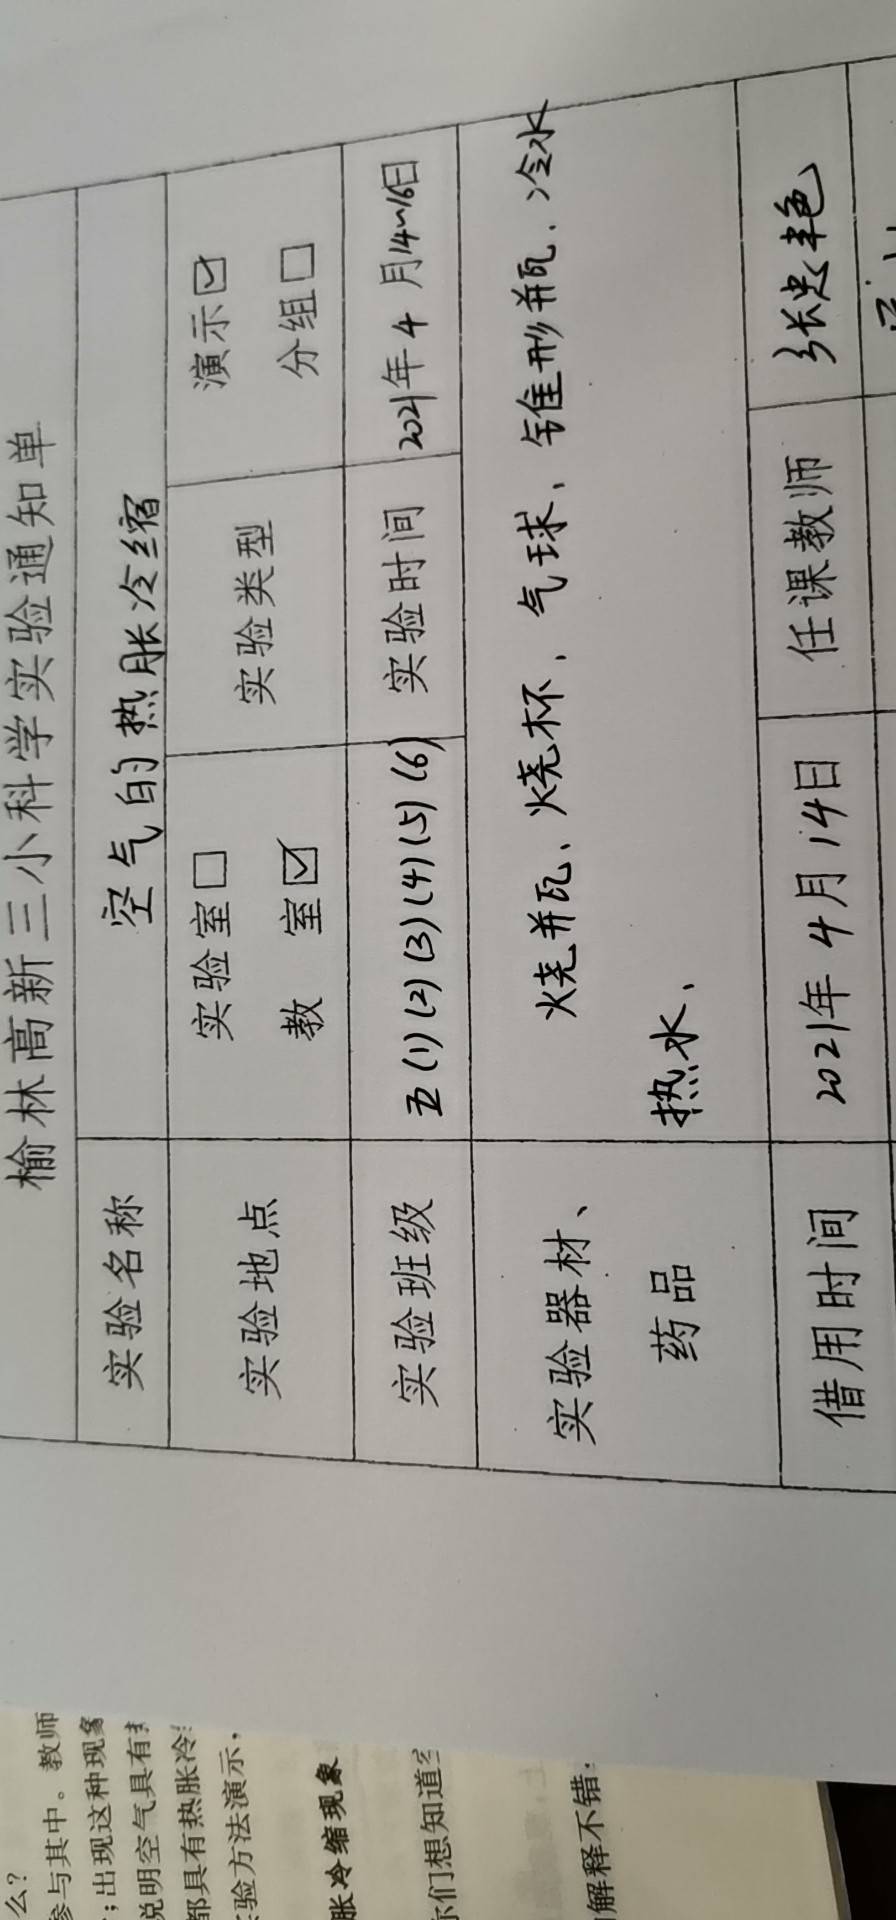 榆林高新三小科学实验通知单
实验名称 空气的热胀冷缩
实验地点 实验室□ 教 室☑ 实验类型 演示☑ 分组□
实验班级 五(1)(2)(3)(4)(5)(6) 实验时间 2021年4月14~16日
实验器材、药品 烧瓶、烧杯、气球、锥形瓶、冷水
热水、
借用时间 2021年4月14日 任课教师 张忠艳
么?
参与其中。教师
;出现这种现象
说明空气具有
都具有热胀冷
验方法演示,
胀冷缩现象
你们想知道
解释不错